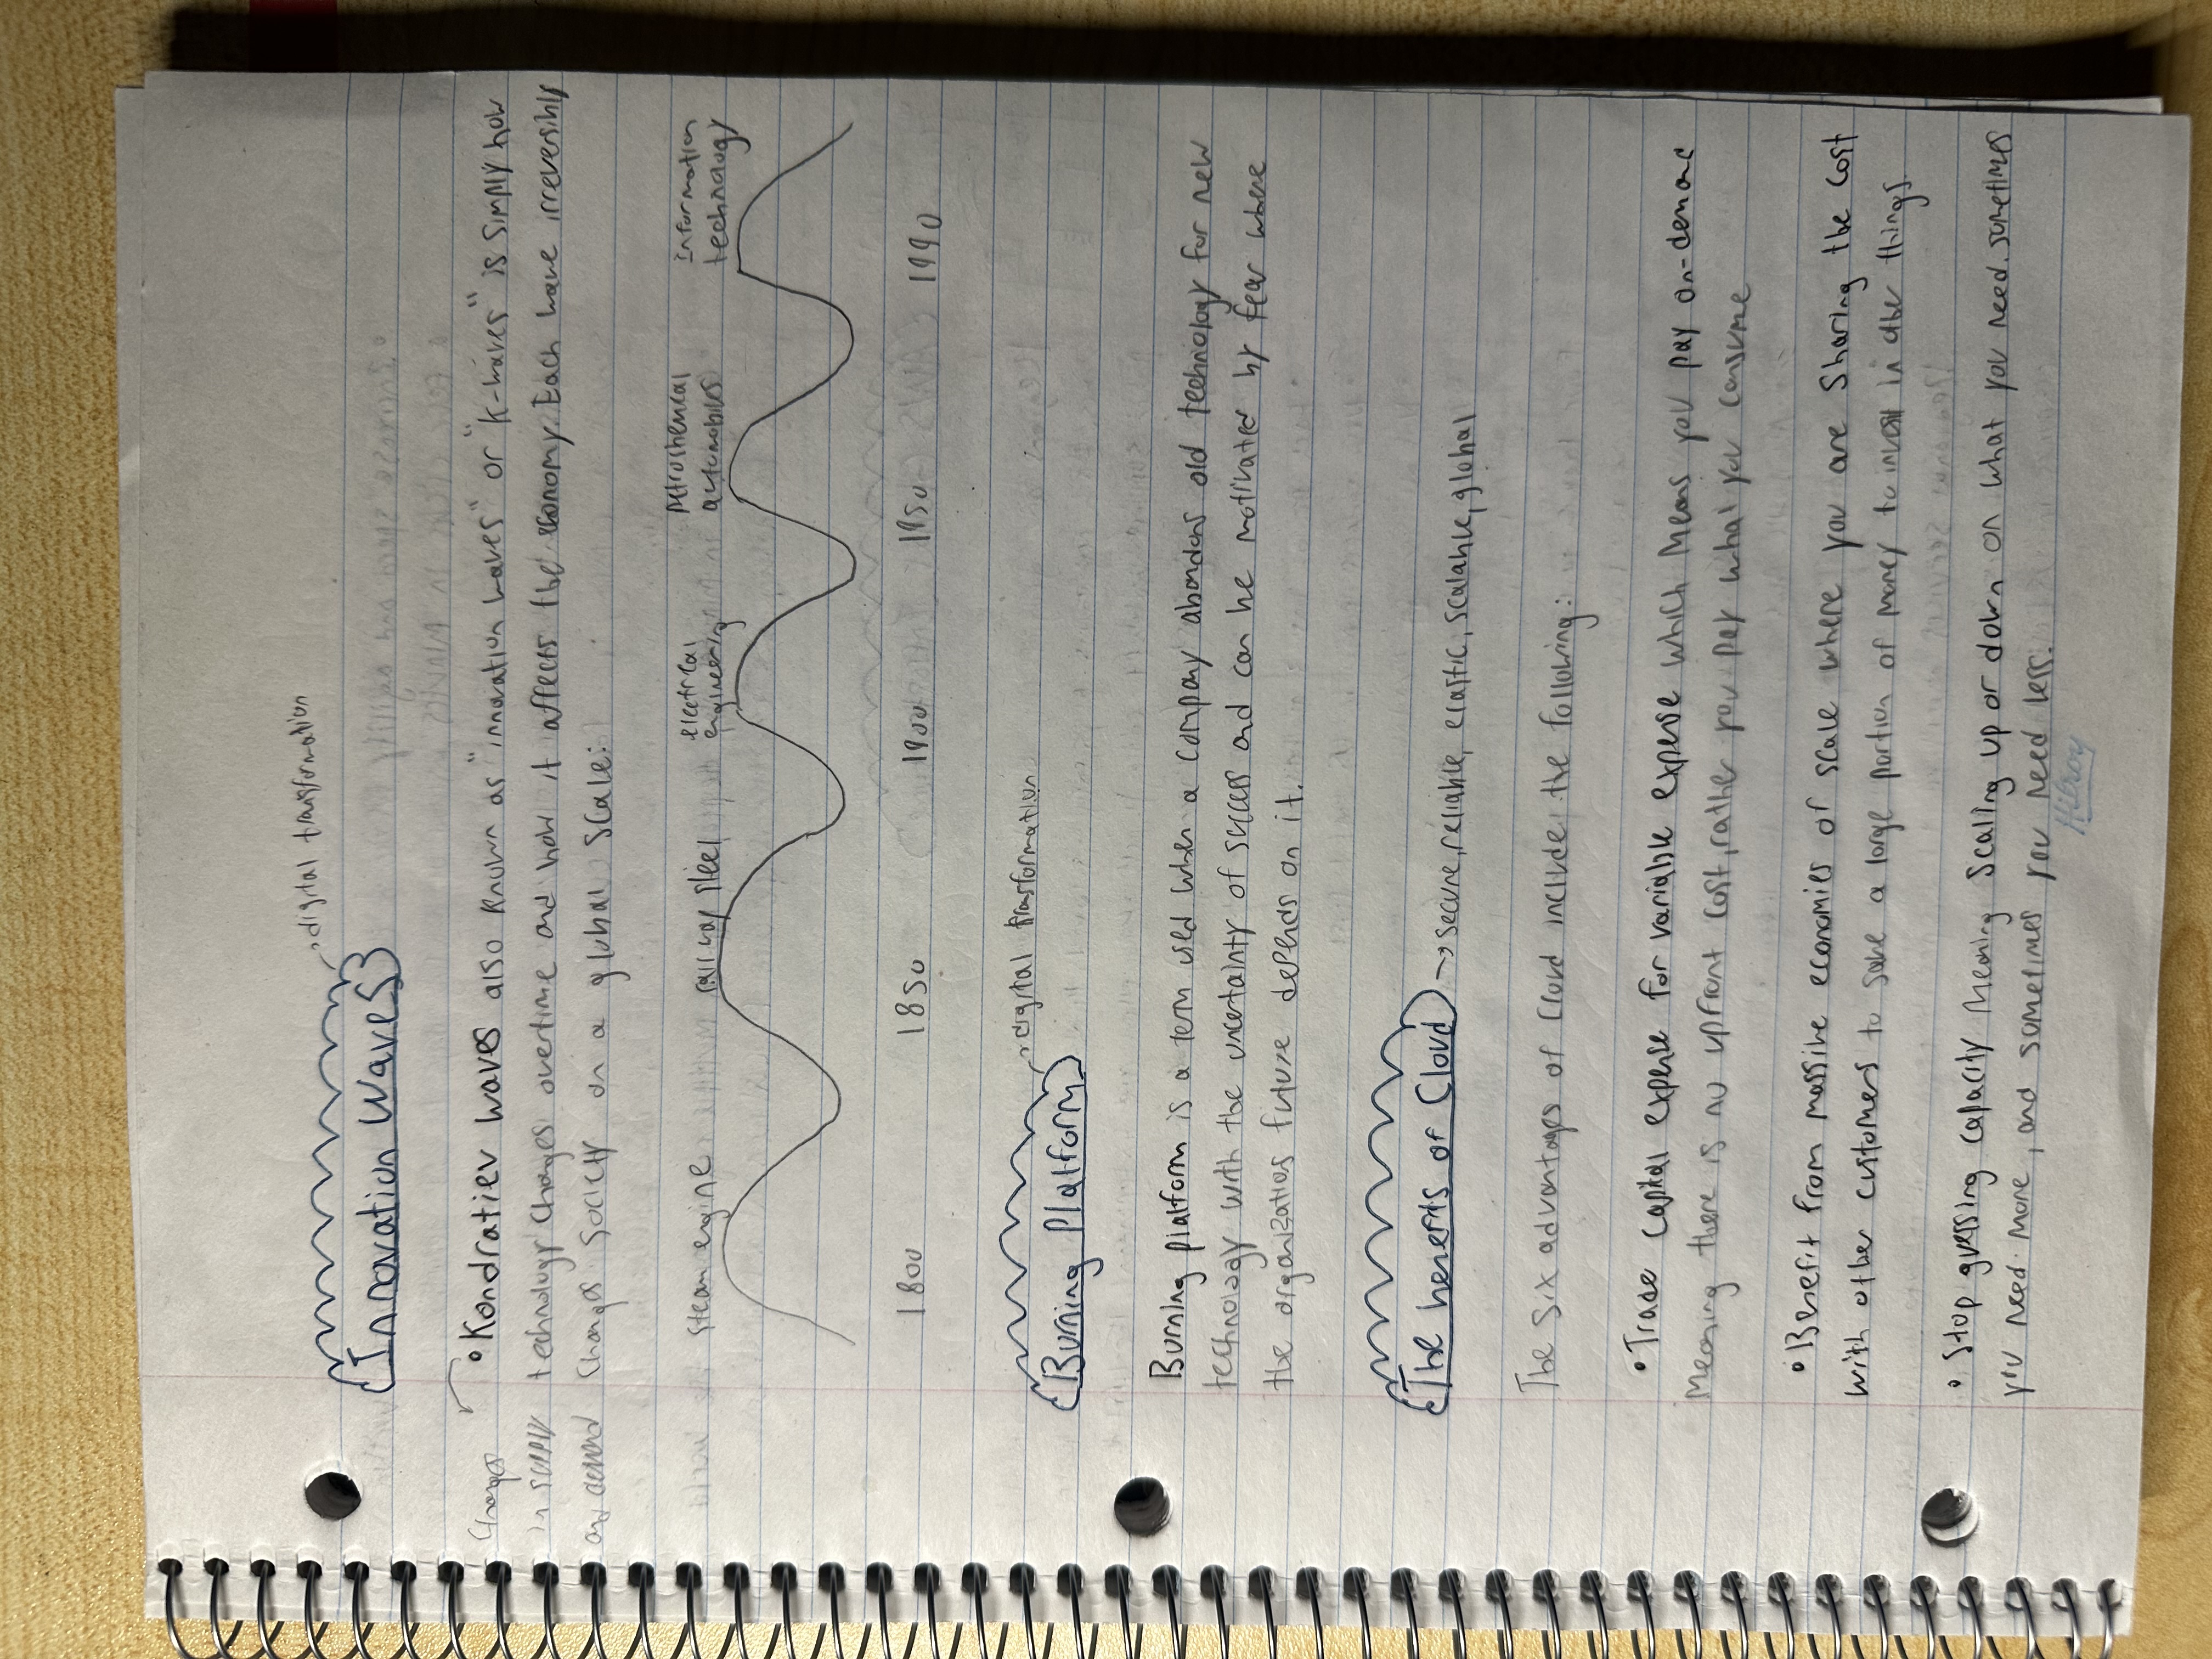 digital transformation
Innovation Waves
• Kondratiev waves also known as "innovation waves" or "K-waves" is simply how
technology changes overtime and how it affects the economy. Each wave irreversibly
changes society on a global scale:
Changes
in supply
and demand
steam engine railway steel electrical engineering petrochemical automobiles Information technology
1800 1850 1900 1950 1990
digital transformation
Burning Platform
Burning platform is a term used when a company abandons old technology for new
technology with the uncertainty of success and can be motivated by fear where
the organizations future depends on it.
The benefits of Cloud → secure, reliable, elastic, scalable, global
The six advantages of Cloud include the following:
• Trade capital expense for variable expense which means you pay on-demand
meaning there is no upfront cost, rather you pay what you consume
• Benefit from massive economies of scale where you are sharing the cost
with other customers to save a large portion of money to invest in other things.
• Stop guessing capacity meaning scaling up or down on what you need. sometimes
you need more, and sometimes you need less.
Hilroy